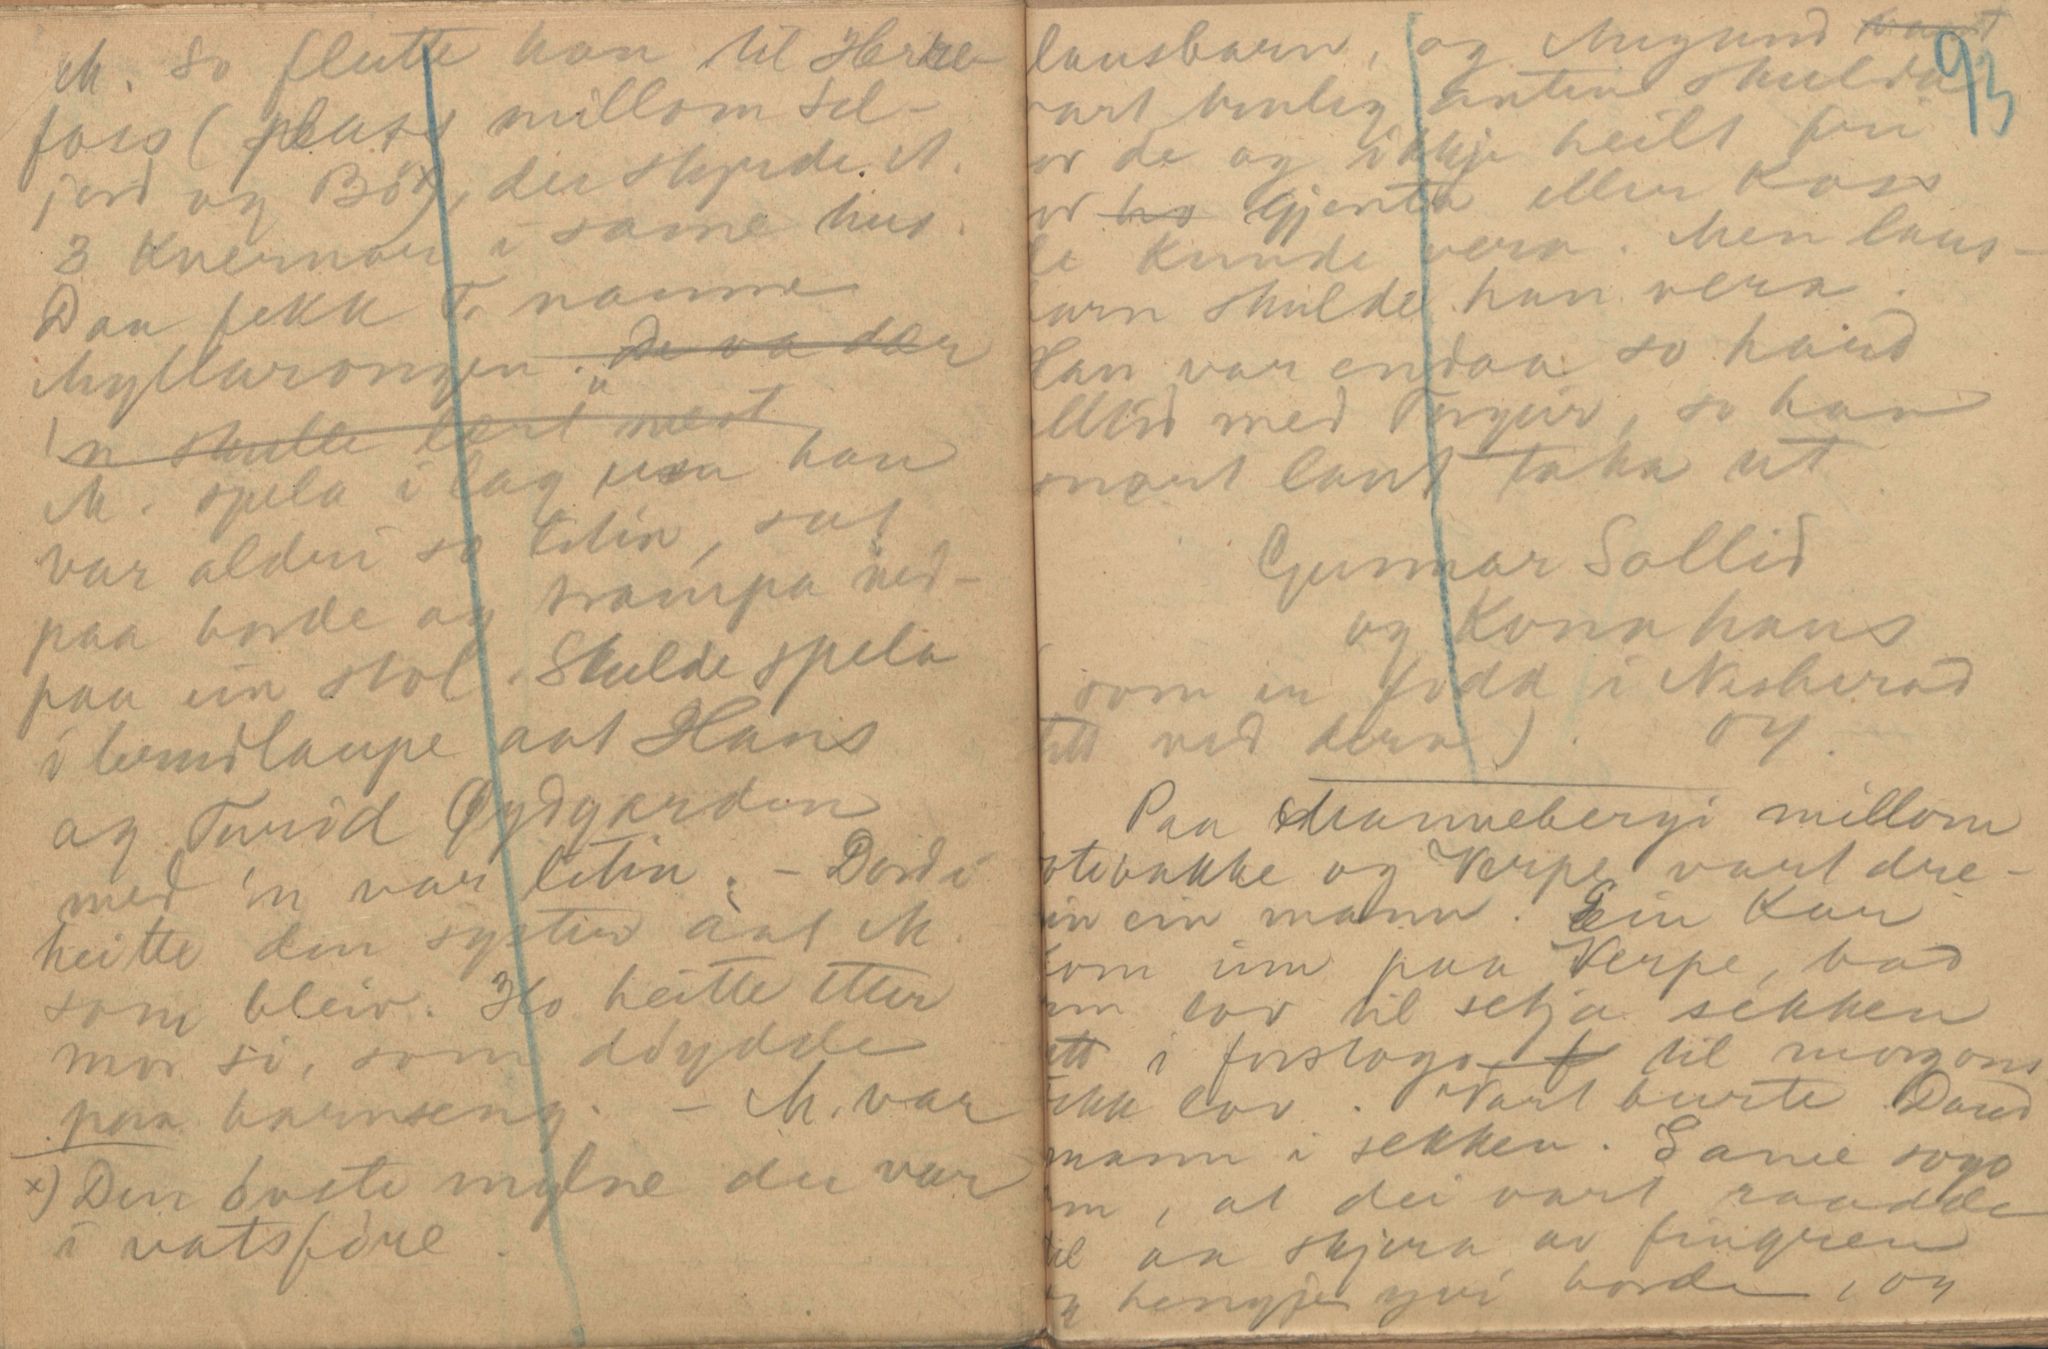 M. So flutte han til Herre-
foss (plass millom Sel-
jord og Bö x), der styrde M.
3 Kvernar i same hus.
Daa fekk T. namne
Myllarongen. De va der
'n skulle lært mest
M. spela i lag han
var alder so liten, sat
paa borde og trampa ned-
paa ein stol. Skulde spela
i brudlaupe aat Hans
og Turid Øygarden
med 'n var liten. – Dordi
heitte den syster aat M.
som bleiv. Ho heitte etter
mor si, som döydde
paa barnseng. – M. var
x) Den överste mylne der var
i vatsföre.
93
lausbarn, og Mogund vart
vart hinlig anten skulda
or de og ikkje heilt fri
or ho Gjenta eller Koss
de kunde vera. Men laus-
barn skulde han vera.
Han var endaa so hard
alltid med Torgeir, so han
snart laut taka ut
Gunnar Sollid
og Kona hans
som er född i Nesherad
tett ved dera). OY.
Paa Mannebergi millom
otebakke og Verpe vart dre-
in ein mann. Ein Kar
kom inn paa Verpe, bad
um lov til setja sekken
att i forstogo til morgons
fekk lov. Vart burte Daud
mann i sekken. Same sogo
m, at dei vart raadde
til aa skjera av fingren
og hengje yvi borde, og